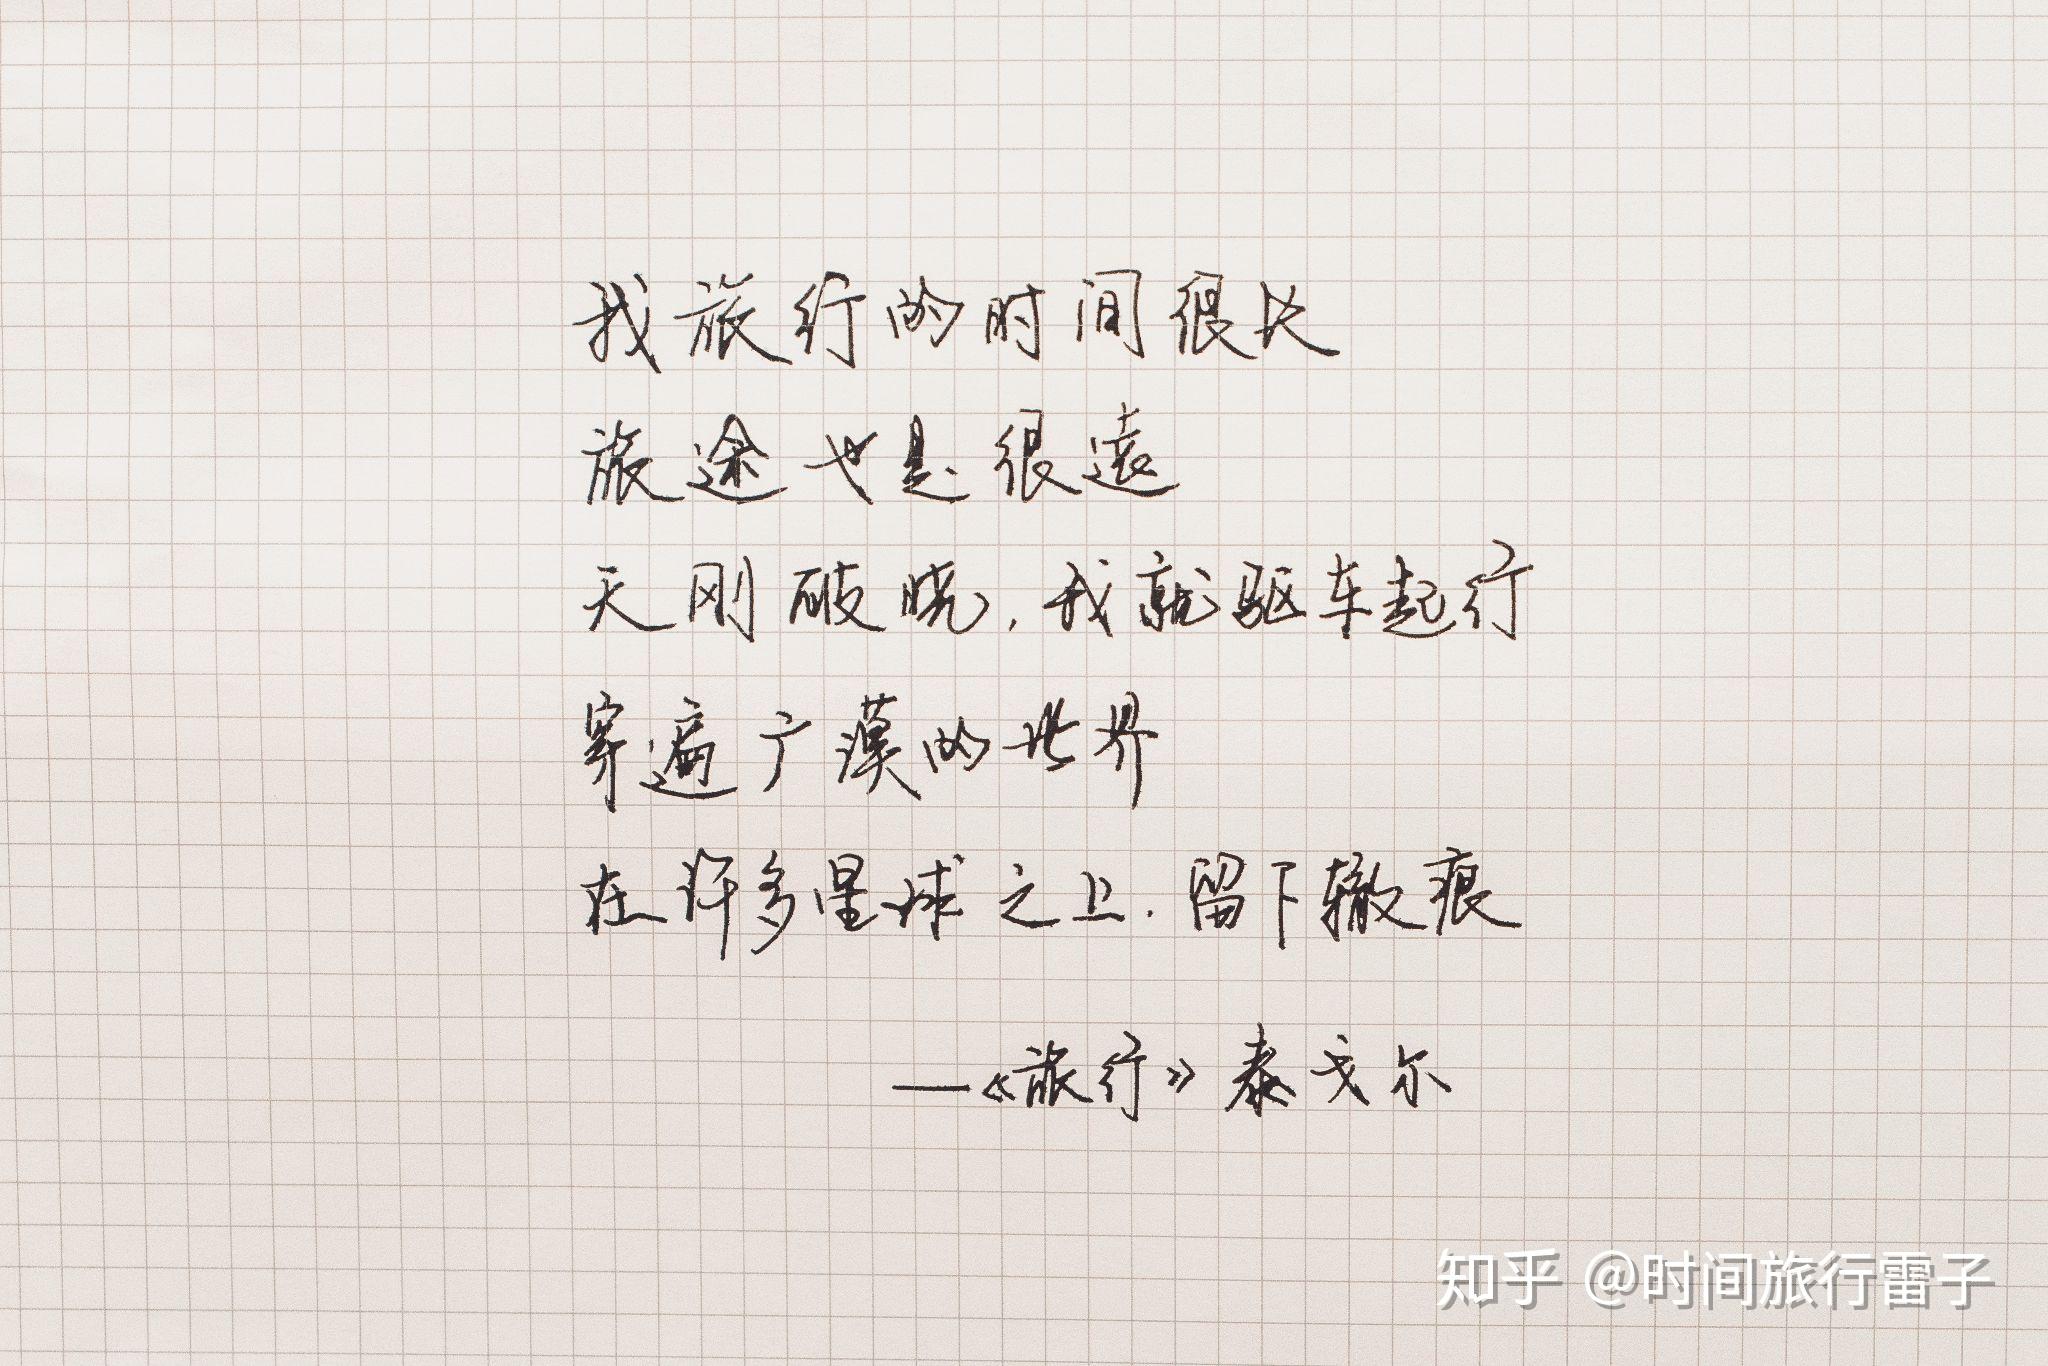 我旅行的时间很长
旅途也是很遠
天刚破晓，我就驱车起行
穿遍广漠的世界
在许多星球之上．留下辙痕
—《旅行》泰戈尔
知乎 @时间旅行雷子